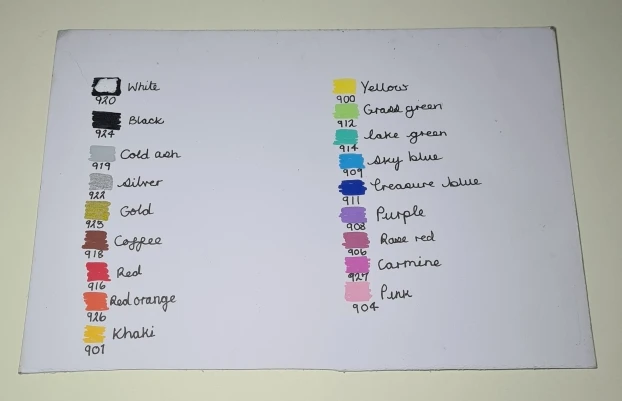 White
920
Black
924
Cold ash
919
Silver
922
Gold
923
Coffee
918
Red
916
Red orange
926
Khaki
901
Yellow
900
Grass green
912
lake green
914
sky blue
909
Treasure blue
911
Purple
908
Rose red
906
Carmine
927
Pink
904